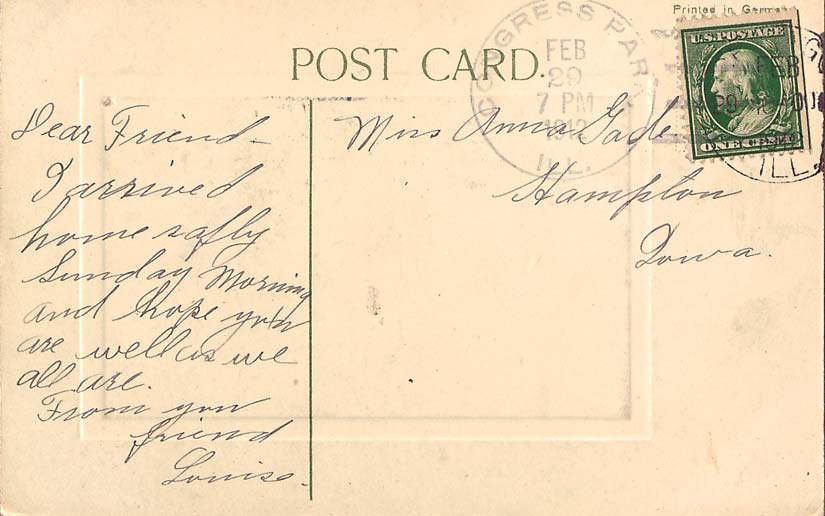 Printed in Germany
POST CARD.
CONGRESS PARK
FEB
29
7 PM
1912
ILL.
U.S.POSTAGE
ONE CENT
FEB
ILL.
Dear Friend -
I arrived
home safly
Sunday Morning
and hope you
are well as we
all are.
From you
friend
Louise.
Miss Anna Gade
Hampton
Iowa.